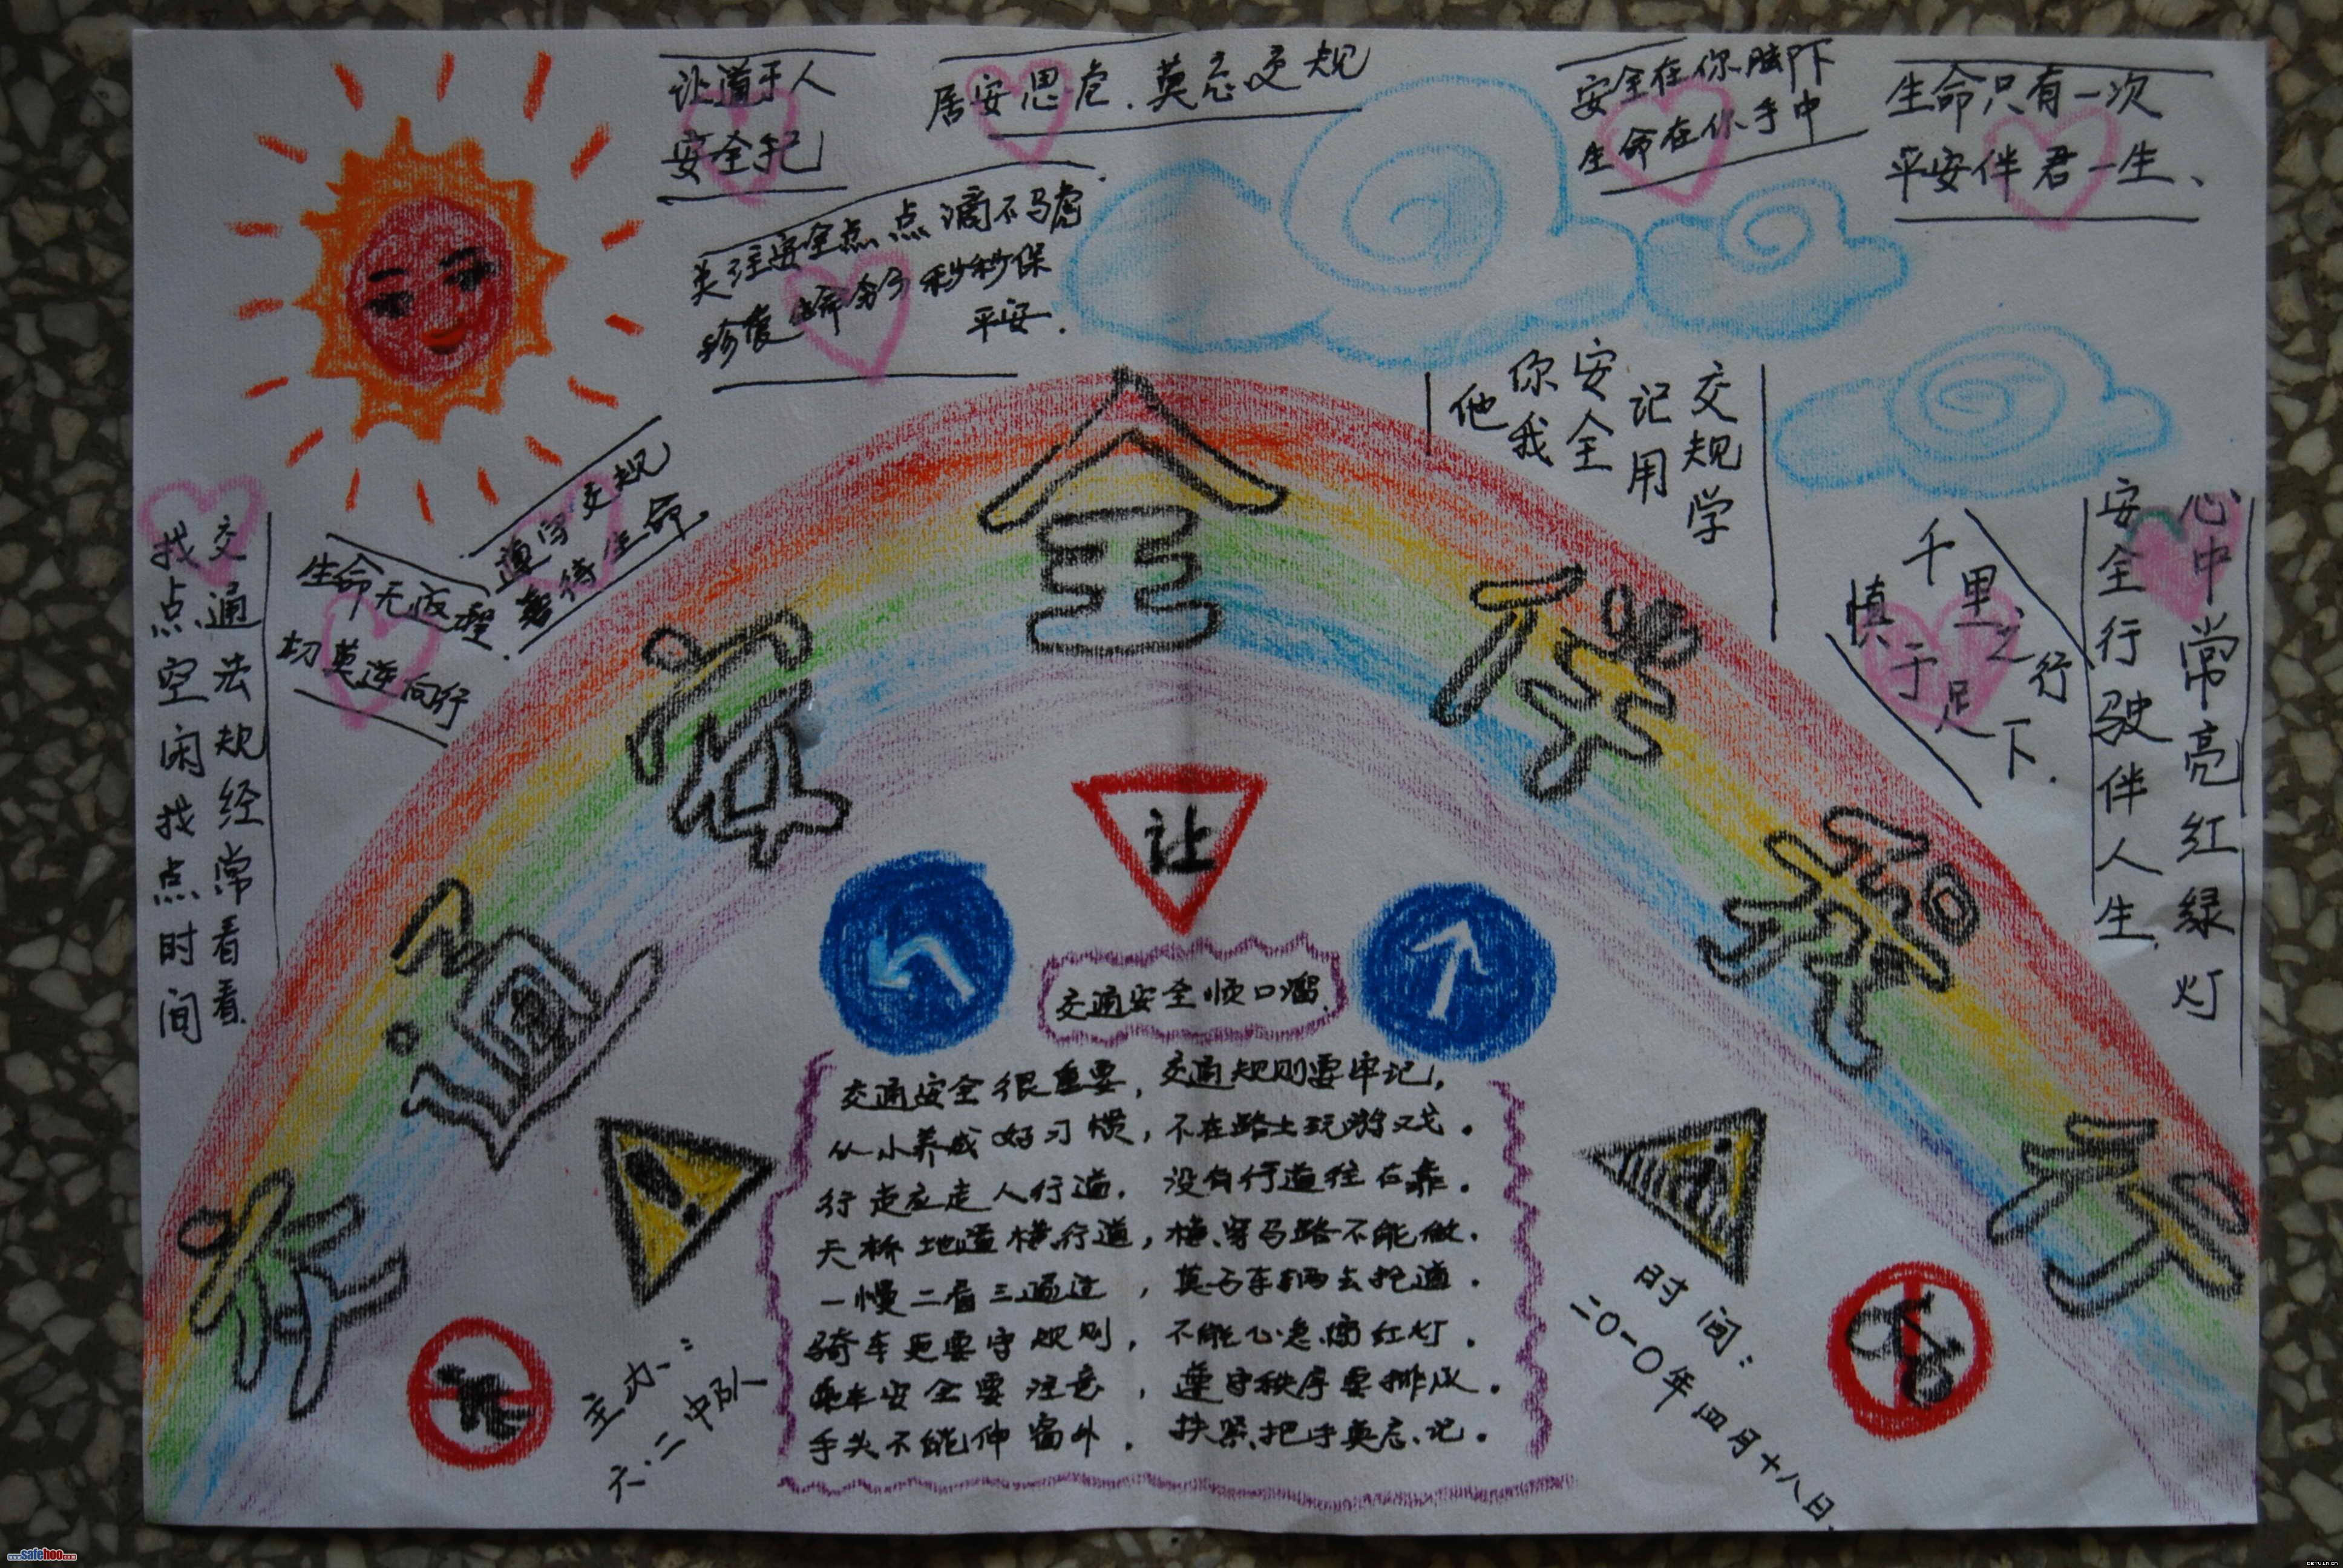 让道于人
安全于己
居安思危.莫忘交规
安全在你脚下
生命在你手中
生命只有一次
平安伴君一生、
关注安全点点滴滴不马虎
珍爱生命分分秒秒保
平安.
交规学
记用
安全
你我
他
遵守交规
善待生命.
生命无返程.
切莫逆向行
交通法规经常看看.
找点空闲找点时间
千里之行
慎于足下.
心中常亮红绿灯
安全行驶伴人生.
交通安全伴我行
让
交通安全顺口溜.
交通安全很重要,交通规则要牢记,
从小养成好习惯,不在路上玩游戏。
行走应走人行道,没有行道往右靠。
天桥地道横行道,横穿马路不能做.
一慢二看三通过,莫与车辆去抢道.
骑车更要守规则,不能心急闯红灯.
乘车安全要注意,遵守秩序要排队。
手头不能伸窗外.扶紧把手莫忘记。
主办:
六.二中队
时间:
二〇一〇年四月十八日.
safehoo.com